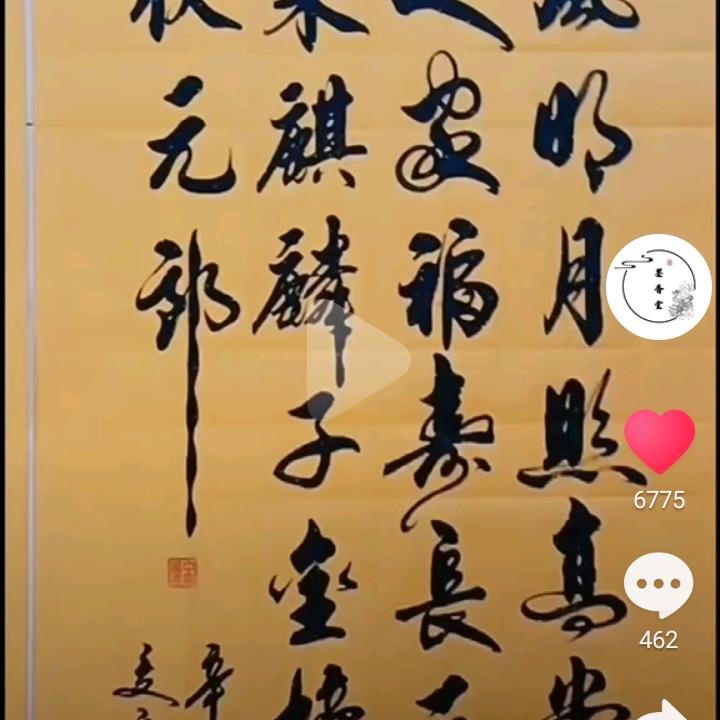 風明月照高堂
之家福寿長
来麒麟子金榜
状元郎
辛
墨香堂
6775
462